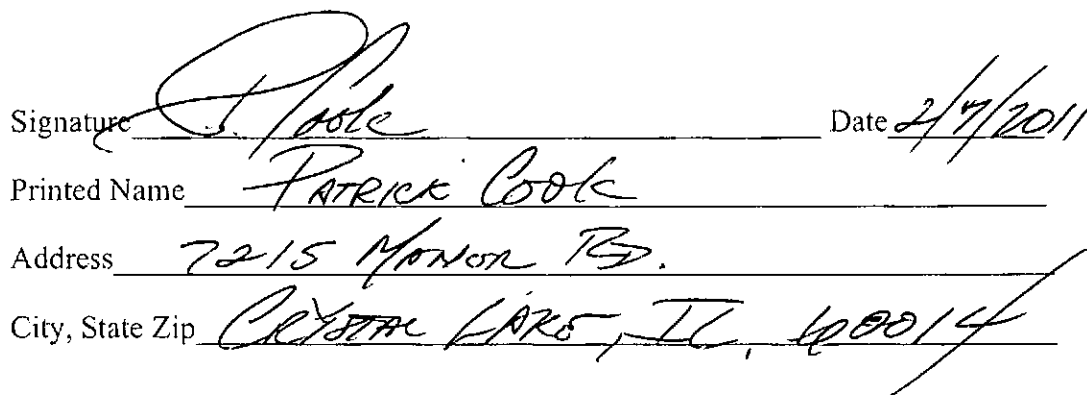 Signature P. Cook Date 2/7/2011
Printed Name PATRICK COOK
Address 7215 MANOR RD.
City, State Zip CRYSTAL LAKE, IL, 60014